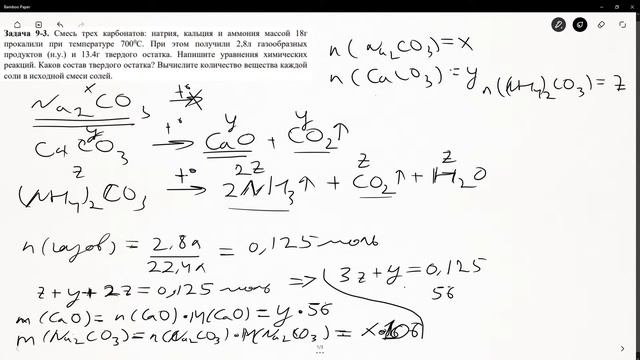 Bamboo Paper
Задача 9-3. Смесь трех карбонатов: натрия, кальция и аммония массой 18г
прокалили при температуре 700⁰С. При этом получили 2,8л газообразных
продуктов (н.у.) и 13.4г твердого остатка. Напишите уравнения химических
реакций. Каков состав твердого остатка? Вычислите количество вещества каждой
соли в исходной смеси солей.
n(Na₂CO₃)=x
n(CaCO₃)=y n((NH₄)₂CO₃)=z
x
Na₂CO₃ t° →
y y y
CaCO₃ t° → CaO + CO₂↑
z 2z z z
(NH₄)₂CO₃ t° → 2NH₃↑ + CO₂↑ + H₂O
n(газов) = 2,8л / 22,4л = 0,125 моль
z+y+2z=0,125 моль => 3z+y=0,125
56
m(CaO)=n(CaO)·M(CaO)=y·56
m(Na₂CO₃)=n(Na₂CO₃)·M(Na₂CO₃)=x·106
1/3